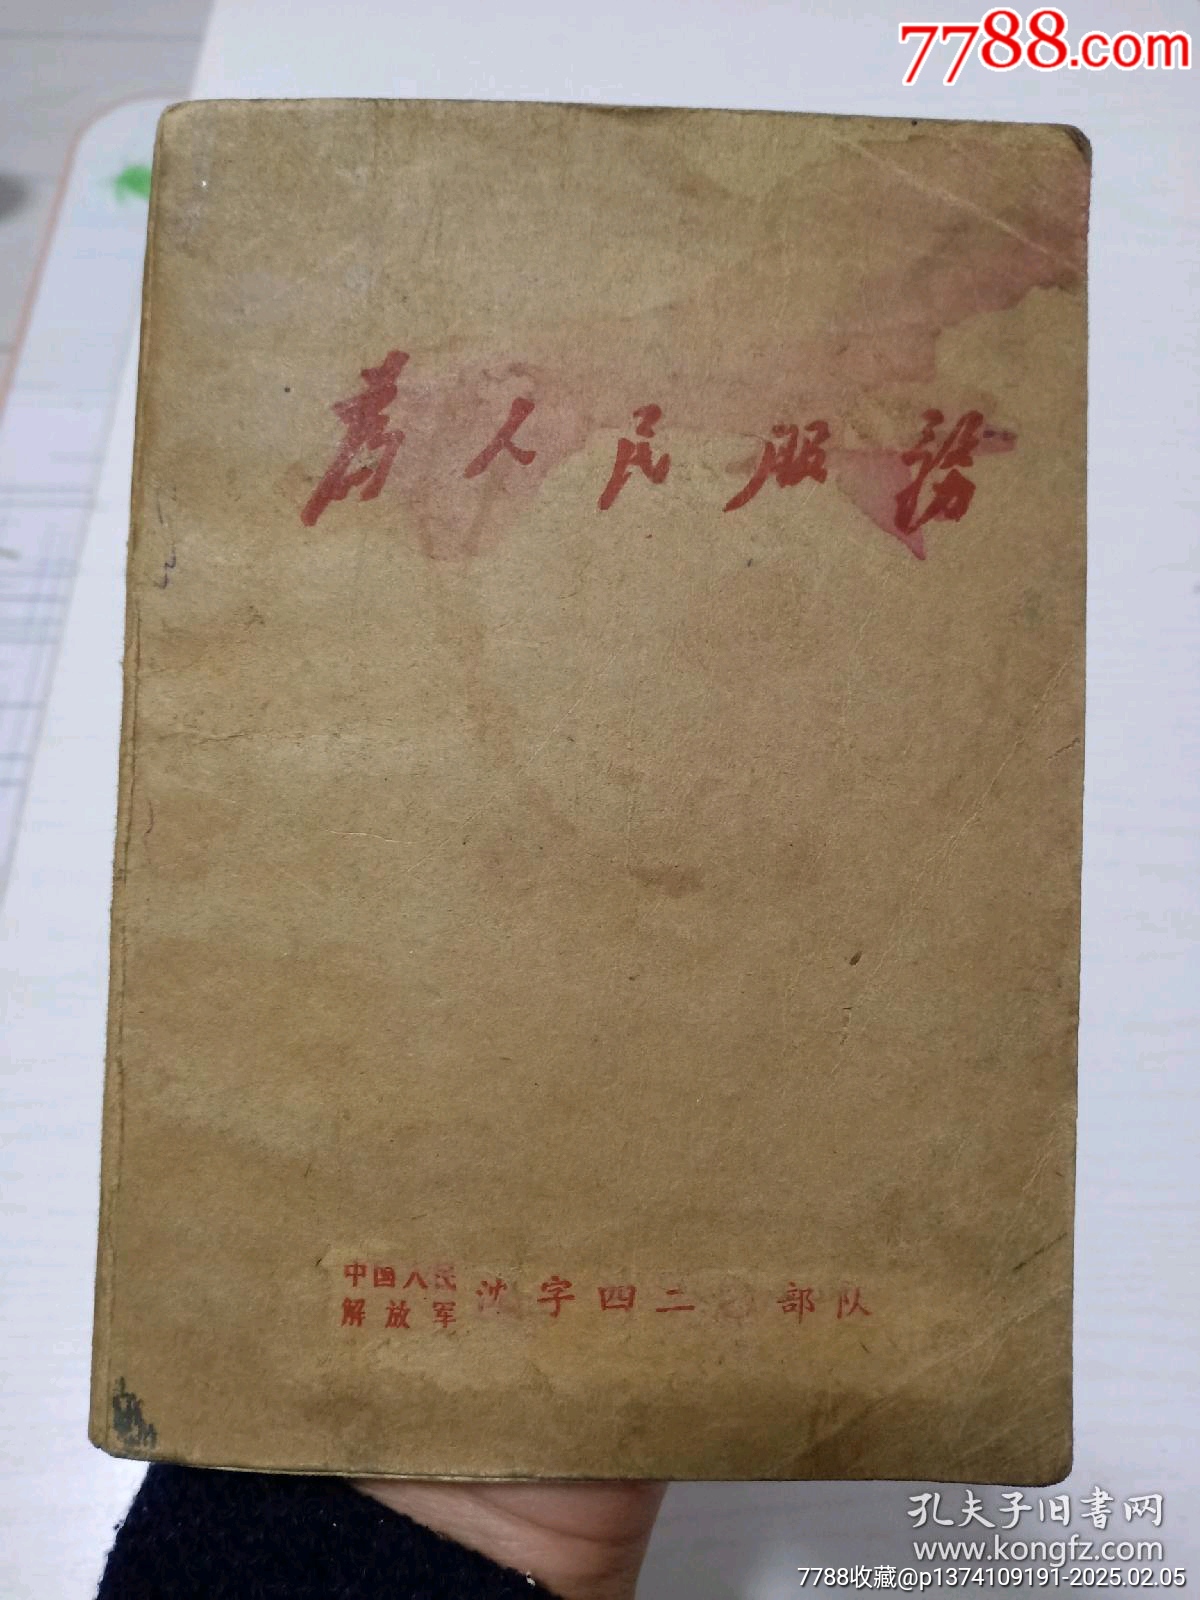 7788.com
为人民服務
中国人民
解放军 沈字四二 部队
孔夫子旧書网
www.kongfz.com
7788收藏@p1374109191-2025.02.05